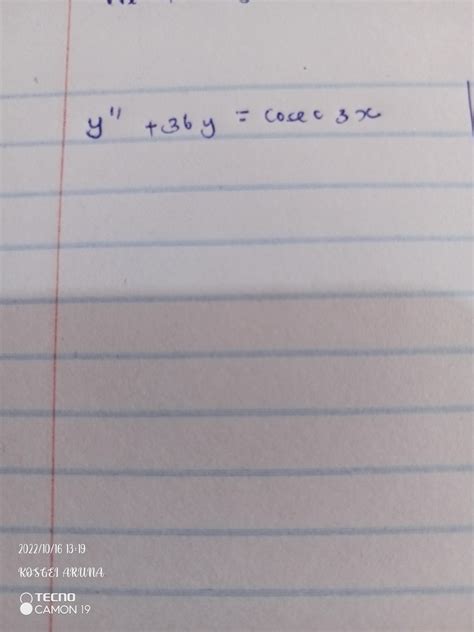 y'' + 36y = cosec 3x
2022/10/16 13:19
KOSGEI ARUNA
TECNO
CAMON 19